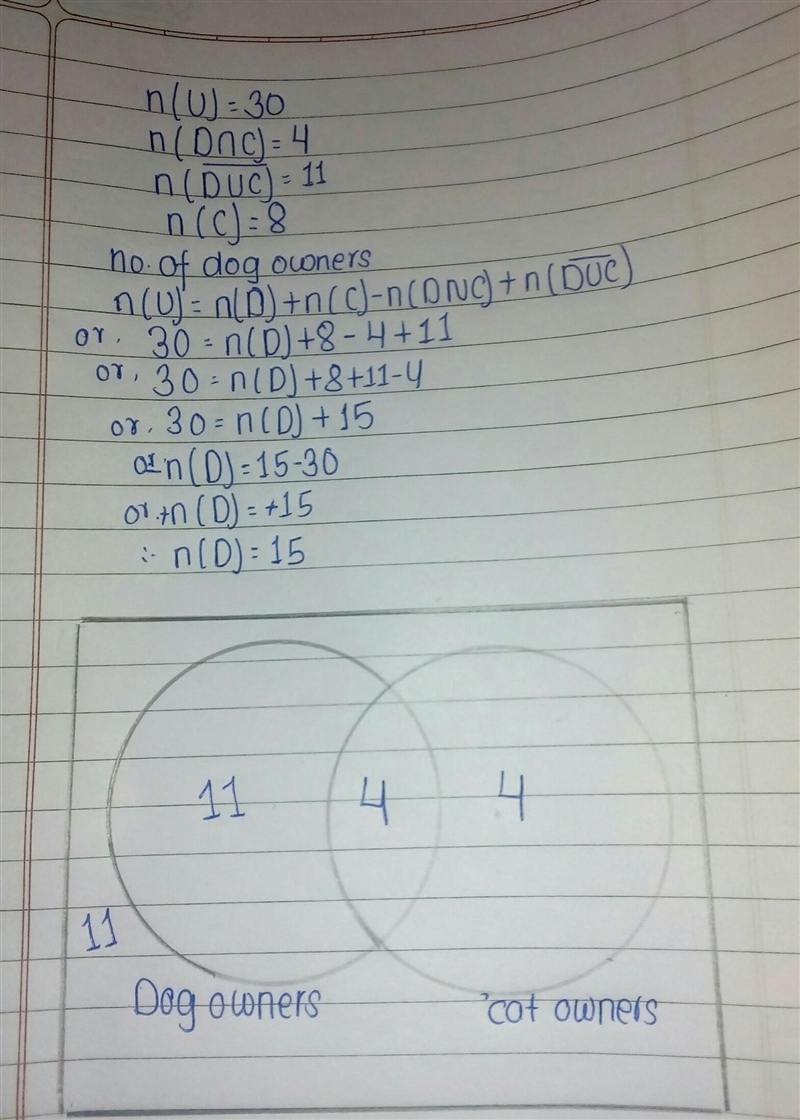 n(U)=30
n(D∩C)=4
n(D̅U̅C̅)=11
n(C)=8
no. of dog owners
n(U)=n(D)+n(C)-n(DNC)+n(D̅U̅C̅)
or, 30=n(D)+8-4+11
or, 30=n(D)+8+11-4
or, 30=n(D)+15
or-n(D)=15-30
or +n(D)=+15
∴ n(D)=15
11 4 4
11
Dog owners cat owners